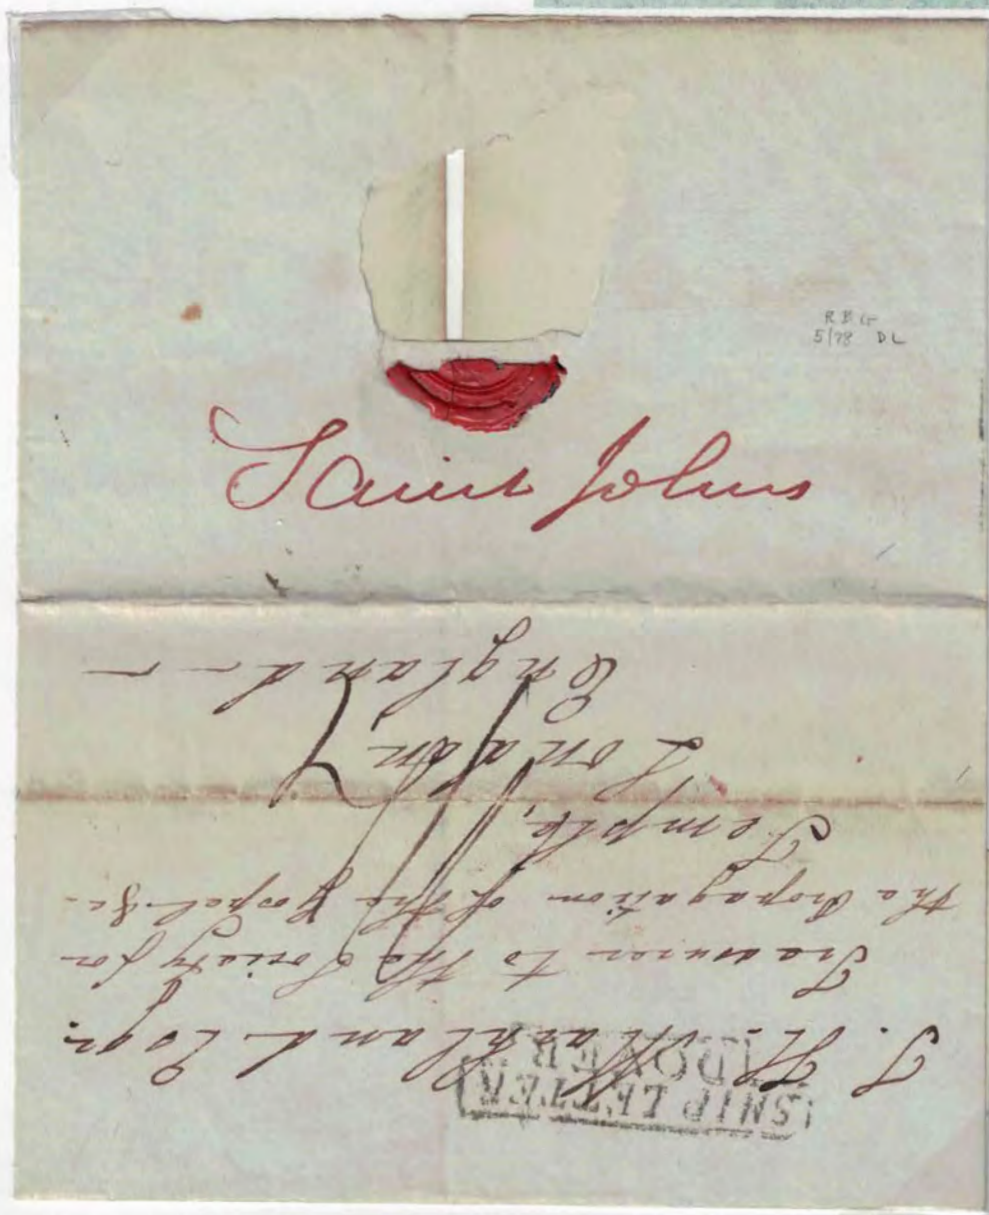 R B G
5/78 DL
Saint Johns
J. H. Markland Esqr.
Treasurer to the Society for
the Propagation of the Gospel &c-
Temple,
London
England - -
SHIP LETTER
DOVER